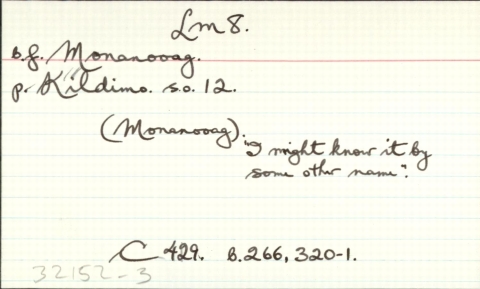 Lm 8.
b.f. Monanooag.
p. Kildimo. s.o. 12.
(Monanooag).
"I might know it by
some other name".
C 429. B.266, 320-1.
32152-3